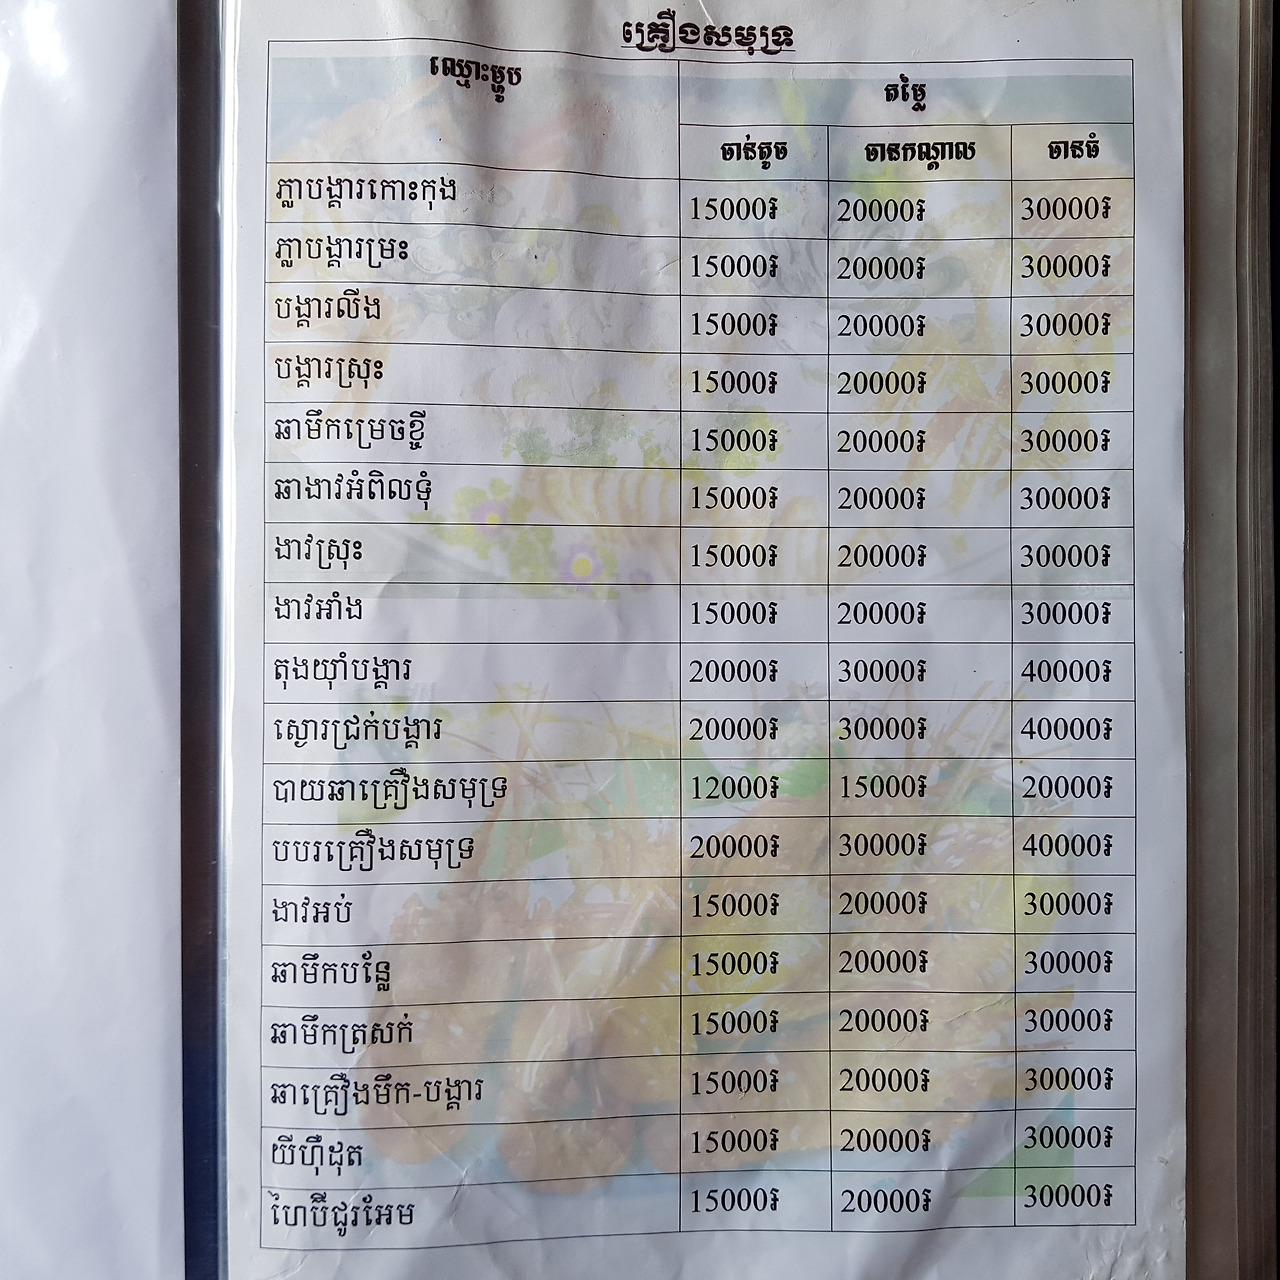 គ្រឿងសមុទ្រ
ឈ្មោះម្ហូប តម្លៃ
ចាន់តូច ចានកណ្តាល ចានធំ
ភ្លាបង្គារកោះកុង 15000៛ 20000៛ 30000៛
ភ្លាបង្គារម្រះ 15000៛ 20000៛ 30000៛
បង្គារលីង 15000៛ 20000៛ 30000៛
បង្គារស្រុះ 15000៛ 20000៛ 30000៛
ឆាមឹកម្រេចខ្ចី 15000៛ 20000៛ 30000៛
ឆាងាវអំពិលទុំ 15000៛ 20000៛ 30000៛
ងាវស្រុះ 15000៛ 20000៛ 30000៛
ងាវអាំង 15000៛ 20000៛ 30000៛
តុងយ៉ាំបង្គារ 20000៛ 30000៛ 40000៛
ស្ងោរជ្រក់បង្គារ 20000៛ 30000៛ 40000៛
បាយឆាគ្រឿងសមុទ្រ 12000៛ 15000៛ 20000៛
បបរគ្រឿងសមុទ្រ 20000៛ 30000៛ 40000៛
ងាវអប់ 15000៛ 20000៛ 30000៛
ឆាមឹកបន្លែ 15000៛ 20000៛ 30000៛
ឆាមឹកត្រសក់ 15000៛ 20000៛ 30000៛
ឆាគ្រឿងមឹក-បង្គារ 15000៛ 20000៛ 30000៛
យីហ៊ឺដុត 15000៛ 20000៛ 30000៛
ហៃប៊ីជូរអែម 15000៛ 20000៛ 30000៛